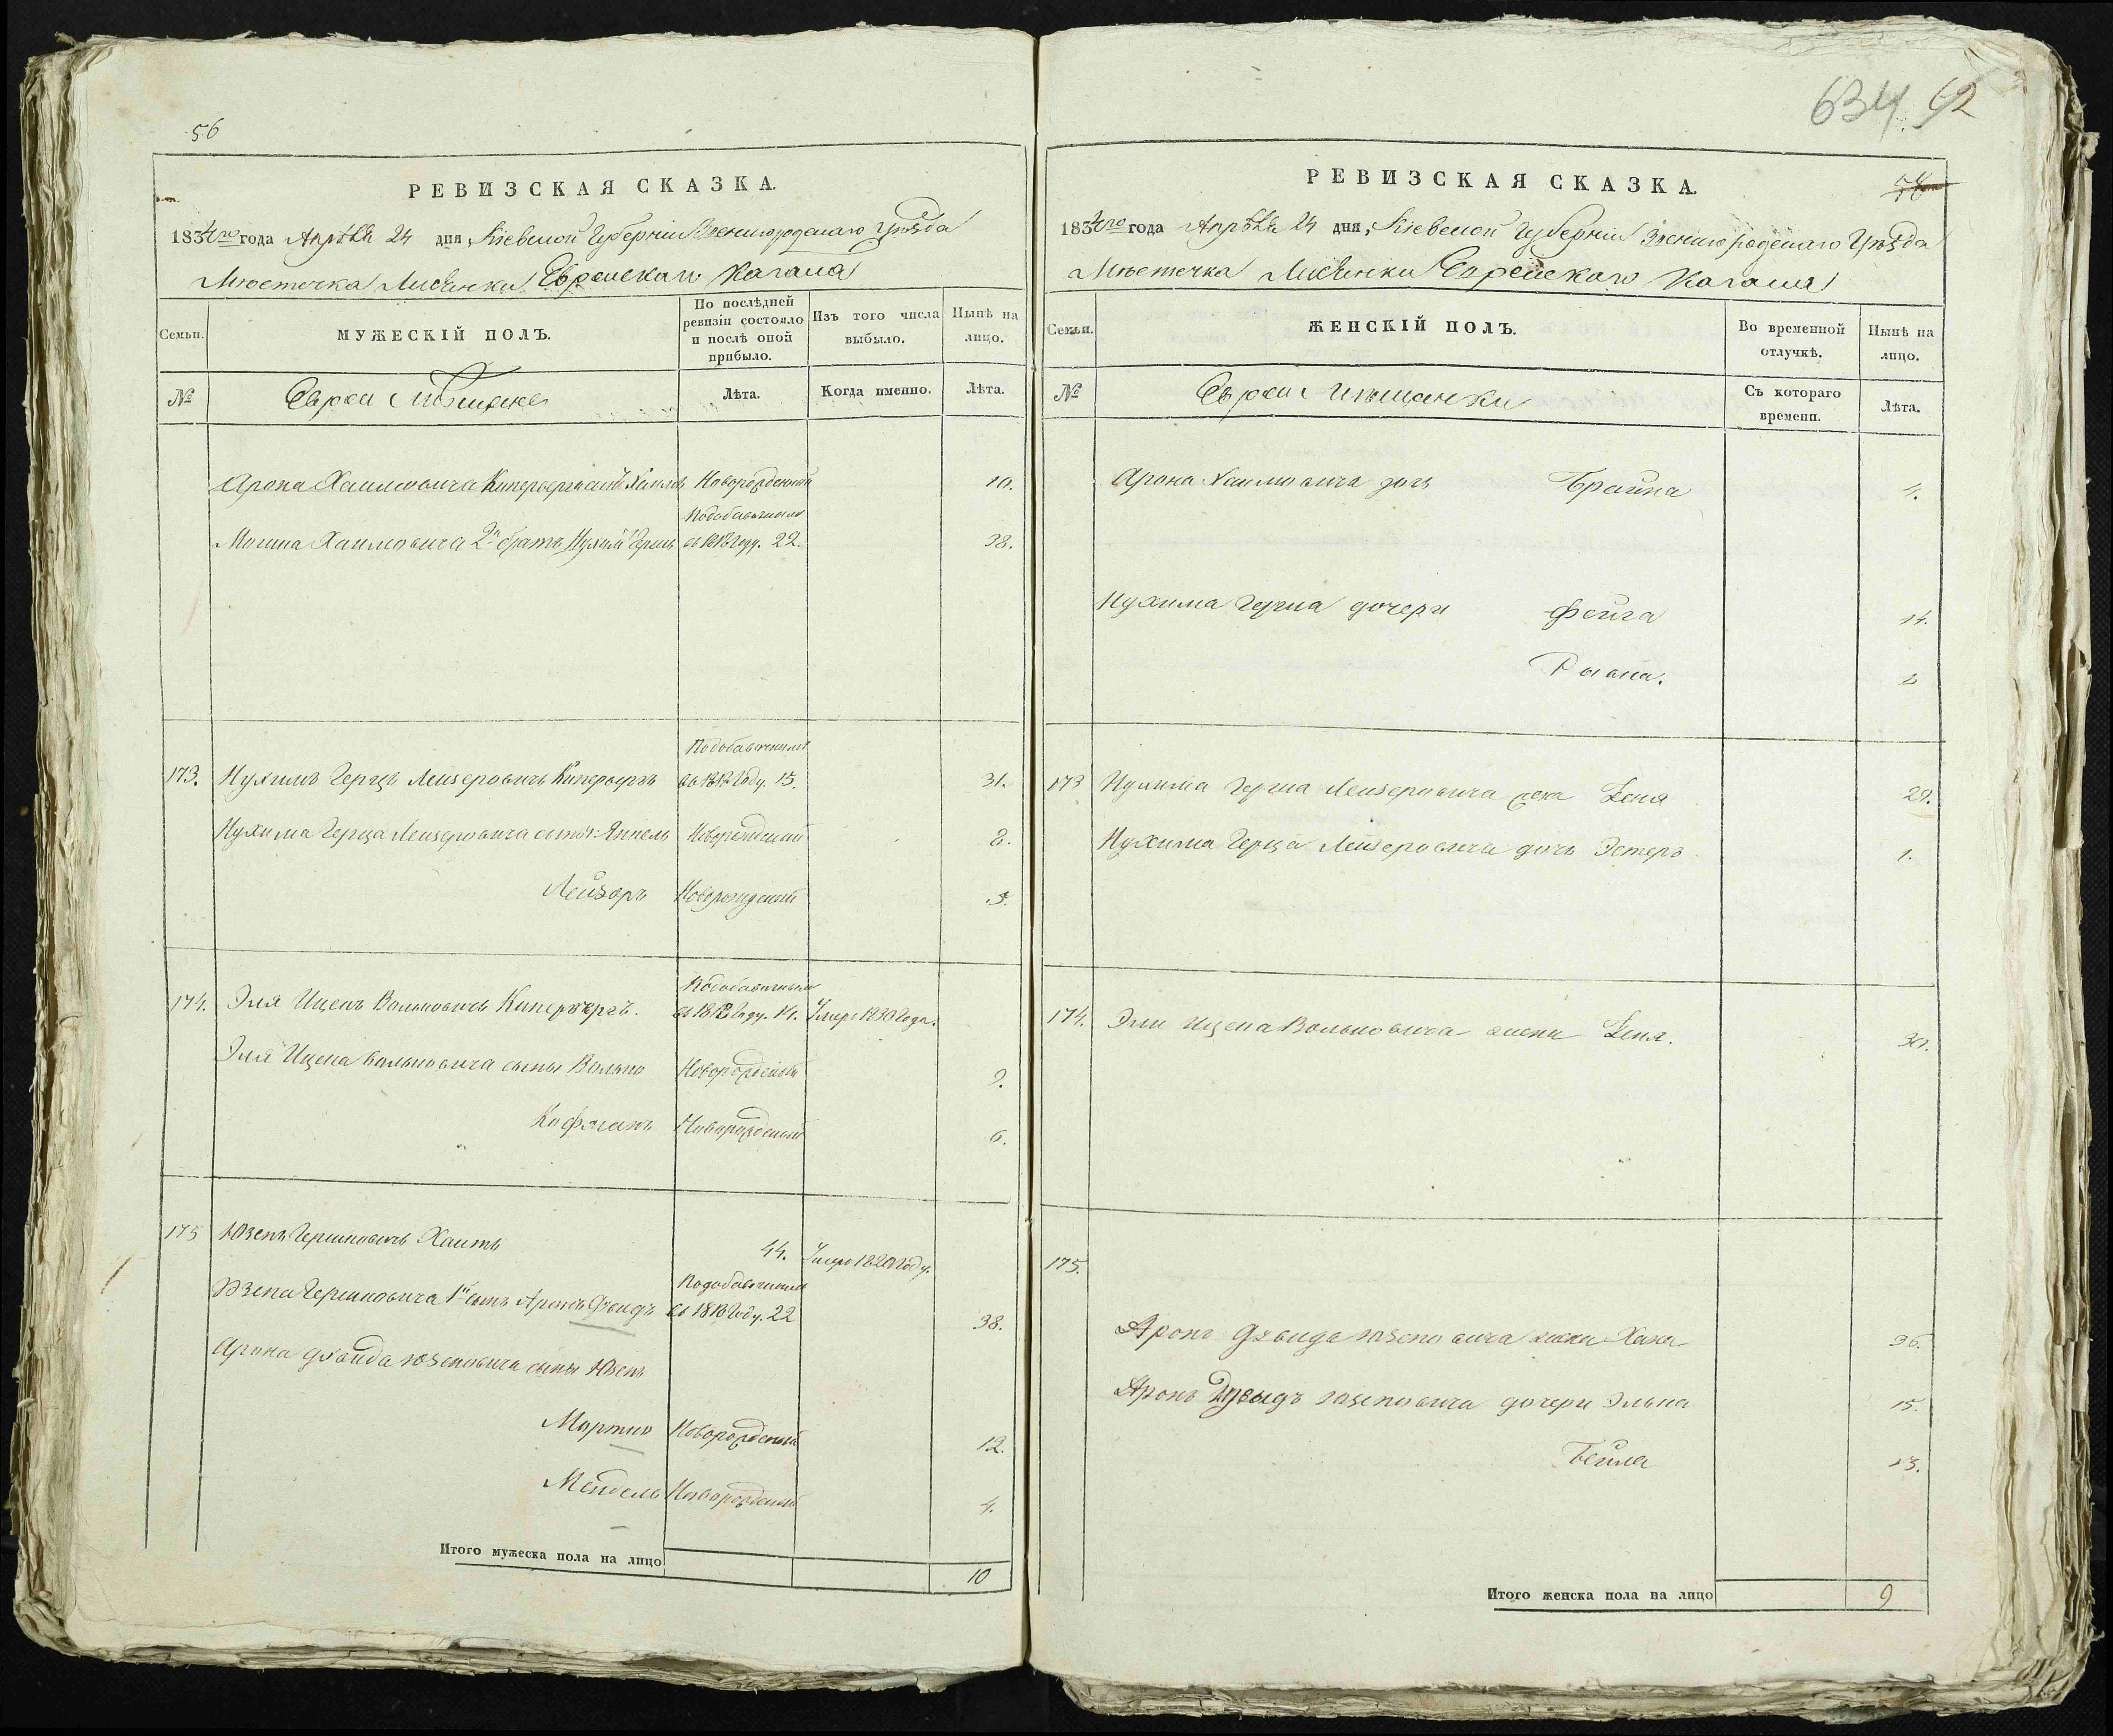 56
РЕВИЗСКАЯ СКАЗКА.
1834го года Апрѣля 24 дня, Кіевской Губерніи Звенигородскаго Уѣзда
Мѣстечка Лисянки Еврейскаго Кагала
Семьи.
МУЖЕСКІЙ ПОЛЪ.
По послѣдней ревизіи состояло и послѣ оной прибыло.
Изъ того числа выбыло.
Нынѣ на лицо.
№
Евреи Мѣщане
Лѣта.
Когда именно.
Лѣта.
Арона Хаимовича сынъ Хаимъ Новорожденный 10.
Подобавочнымъ
Хаимовича 2й братъ Нухимъ Герцъ въ 1818 году. 22. 38.
Подобавочнымъ
173. Нухимъ Герцъ Лейзеровичъ въ 1818 Году. 15. 31.
Нухима Герца Лейзеровича сыны: Янкель Новорожденный 8.
Лейзоръ Новорожденный 3.
Подобавочнымъ
174. Эля Иценъ Вольковичъ въ 1818 Году. 14. Умеръ 1830 Года.
Эля Ицена Вольковича сыны Волько Новорожденный 9.
Новорожденный 6.
175 Юзепъ Гершковичъ 44. Умеръ 1820 Году.
Подобавочнымъ
Юзепа Гершковича 1й сынъ Аронъ Давидъ въ 1818 Году. 22 38.
Арона Давида Юзеповича сыны Юзепъ
Мортко Новорожденный 12.
Мендель Новорожденный 4.
Итого мужеска пола на лицо 10
634. 62
58
РЕВИЗСКАЯ СКАЗКА.
1834го года Апрѣля 24 дня, Кіевской Губерніи Звенигородскаго Уѣзда
Мѣстечка Лисянки Еврейскаго Кагала
Семьи.
ЖЕНСКІЙ ПОЛЪ.
Во временной отлучкѣ.
Нынѣ на лицо.
№
Евреи Мѣщанки
Съ котораго времени.
Лѣта.
Арона Хаимовича дочь Брайна 4.
Нухима Герца дочери Фейга 14.
2
173 Нухима Герца Лейзеровича жена Ксня 29.
Нухима Герца Лейзеровича дочь Эстеръ 1.
174. Эли Ицена Вольковича жена 30.
175.
Аронъ Давида Юзеповича жена Хана 36.
Аронъ Давыдъ Юзеповича дочери Элька 15.
Бейла 13.
Итого женска пола на лицо 9